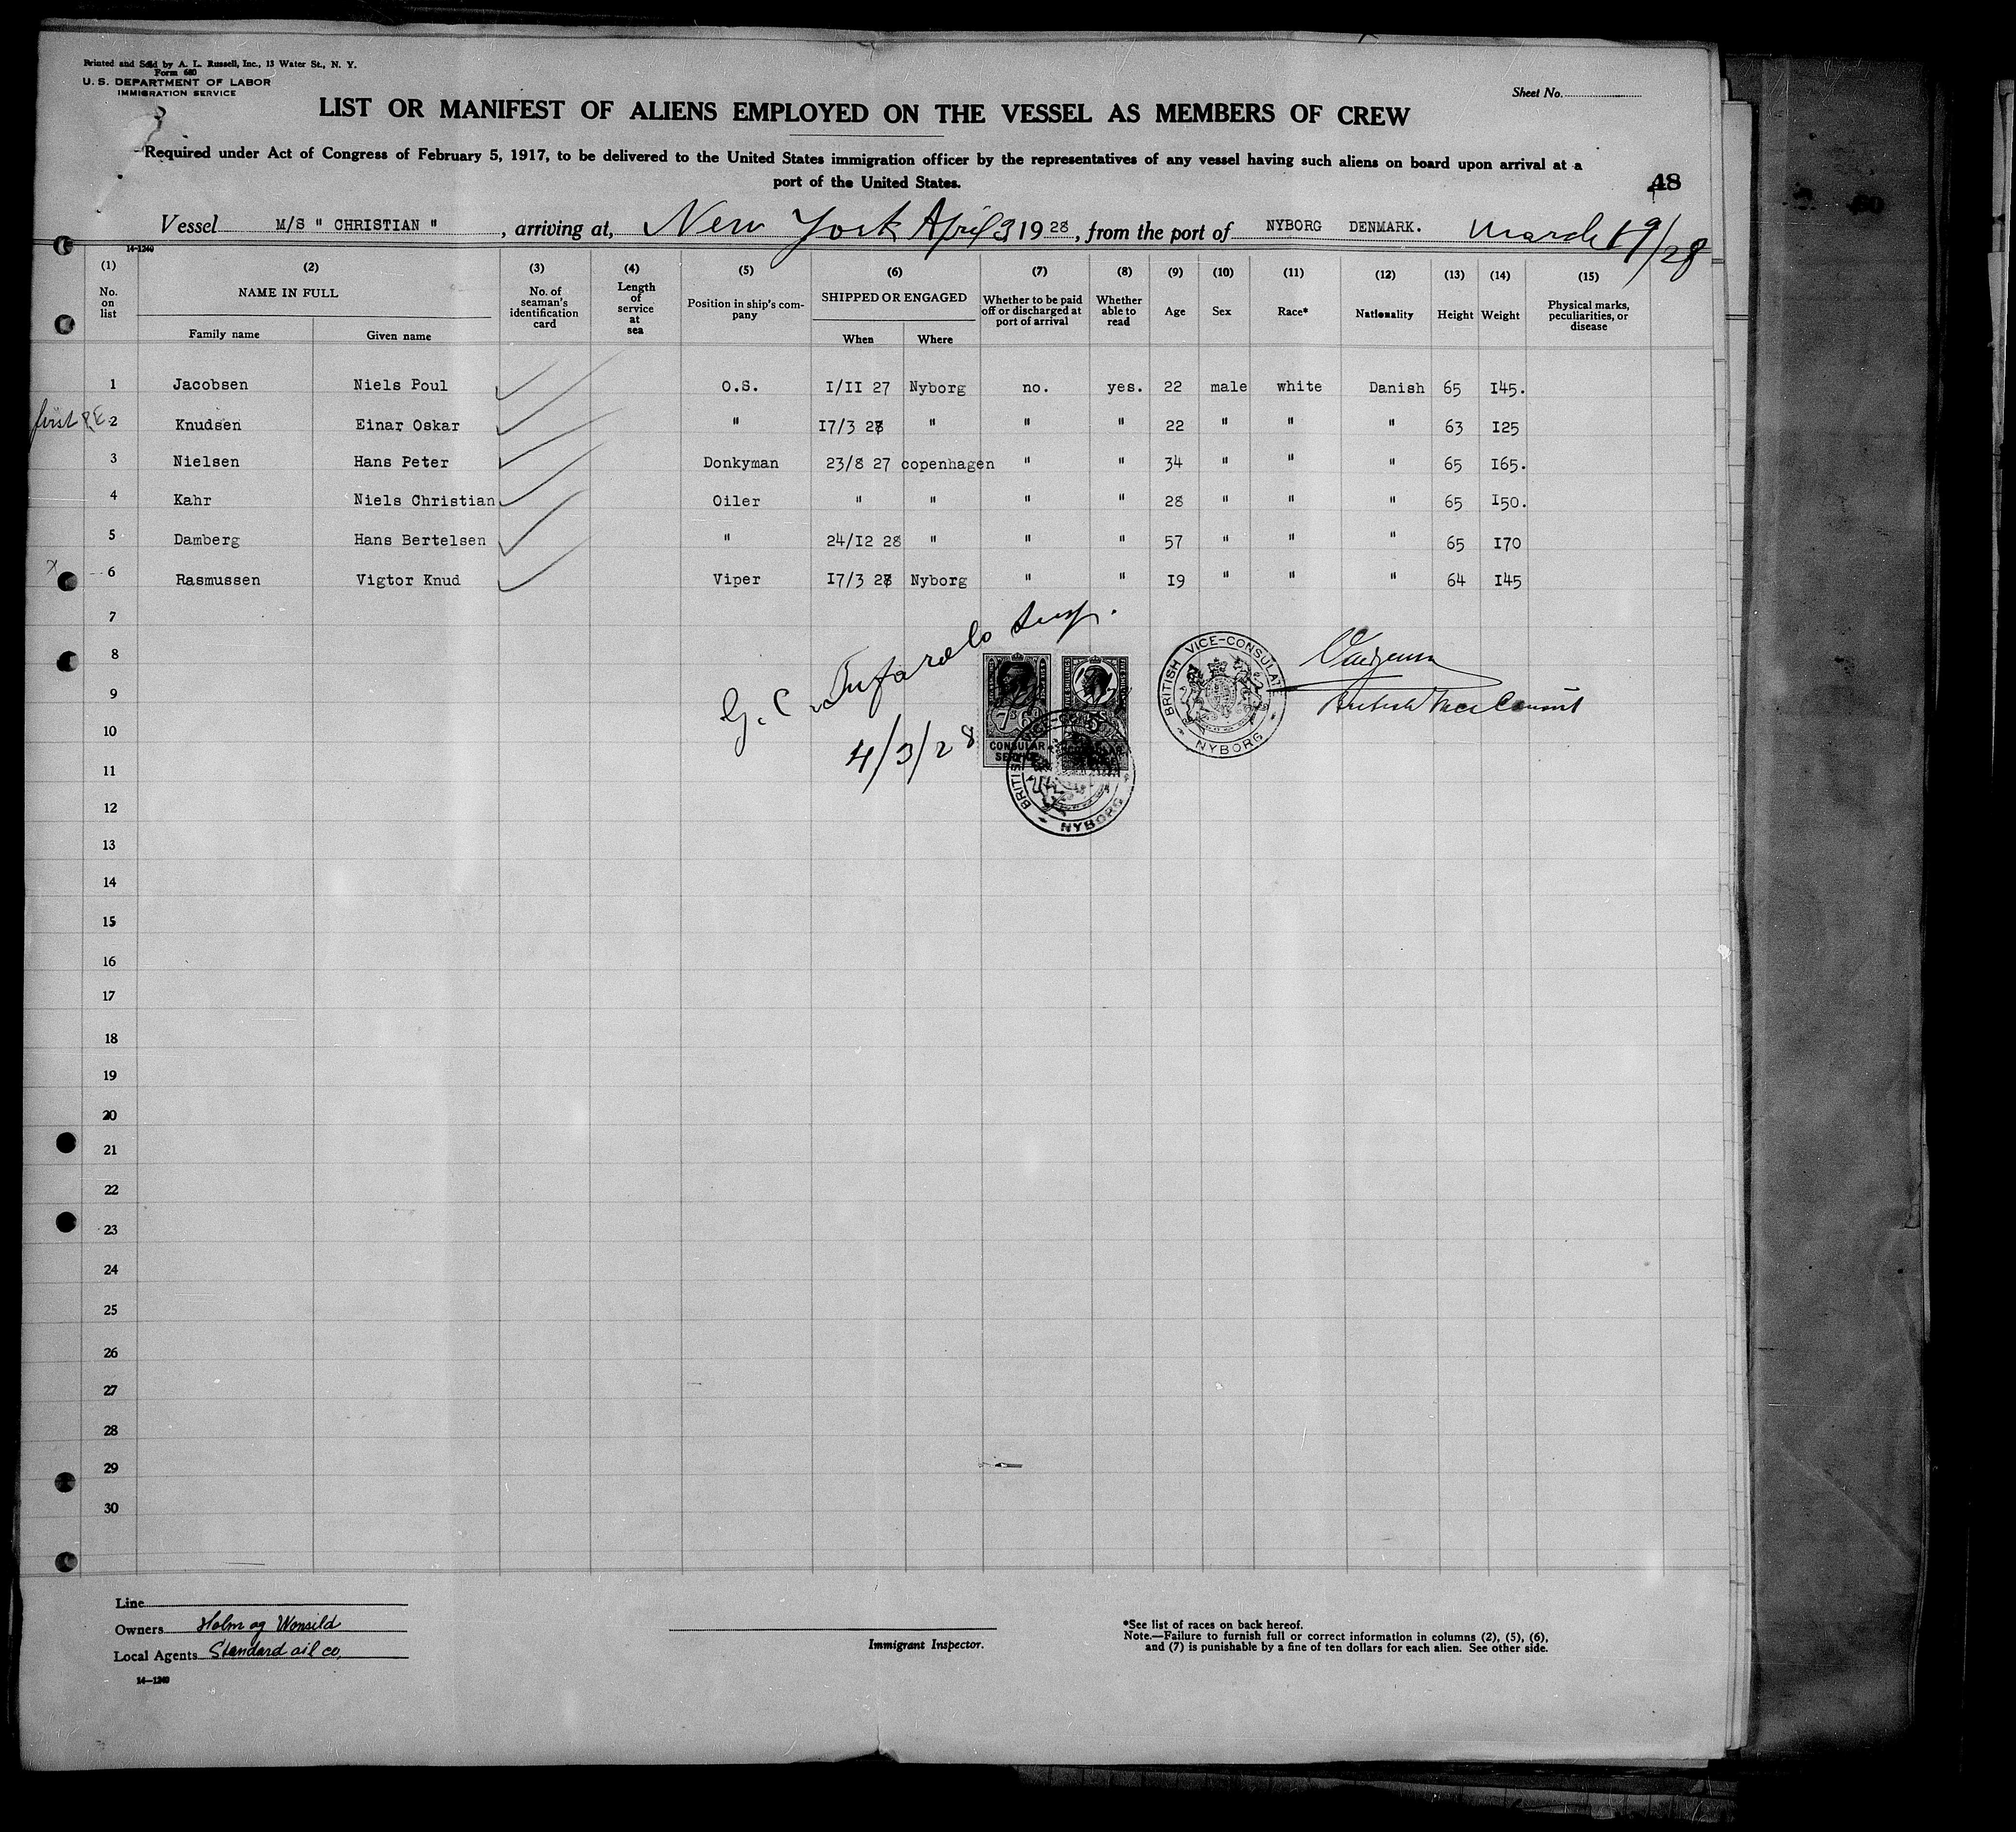 Printed and Sold by A. L. Russell, Inc., 13 Water St., N. Y.
Form 680
U. S. DEPARTMENT OF LABOR
IMMIGRATION SERVICE
Sheet No.
LIST OR MANIFEST OF ALIENS EMPLOYED ON THE VESSEL AS MEMBERS OF CREW
Required under Act of Congress of February 5, 1917, to be delivered to the United States immigration officer by the representatives of any vessel having such aliens on board upon arrival at a
port of the United States.
48
Vessel M/S " CHRISTIAN " , arriving at, New York April 3, 1928, from the port of NYBORG DENMARK. March 19/28
14-1240
(1) (2) (3) (4) (5) (6) (7) (8) (9) (10) (11) (12) (13) (14) (15)
No. on list NAME IN FULL No. of seaman's identification card Length of service at sea Position in ship's company SHIPPED OR ENGAGED Whether to be paid off or discharged at port of arrival Whether able to read Age Sex Race* Nationality Height Weight Physical marks, peculiarities, or disease
Family name Given name When Where
1 Jacobsen Niels Poul O.S. I/II 27 Nyborg no. yes. 22 male white Danish 65 I45.
first 2 Knudsen Einar Oskar " I7/3 28 " " " 22 " " " 63 I25
3 Nielsen Hans Peter Donkyman 23/8 27 copenhagen " " 34 " " " 65 I65.
4 Kahr Niels Christian Oiler " " " " 28 " " " 65 I50.
5 Damberg Hans Bertelsen " 24/I2 28 " " " 57 " " " 65 I70
x 6 Rasmussen Vigtor Knud Viper I7/3 28 Nyborg " " I9 " " " 64 I45
7
8
9
10
11
12
13
14
15
16
17
18
19
20
21
22
23
24
25
26
27
28
29
30
G. C. Tufarolo Insp.
4/3/28
7s 6d
CONSULAR SERVICE
FIVE SHILLINGS
BRITISH VICE-CONSULATE
NYBORG
BRITISH VICE-CONSULATE
NYBORG
British Vice Consul
Line
Owners Holm og Wonsild
Local Agents Standard oil co.
14-1240
Immigrant Inspector.
*See list of races on back hereof.
Note.—Failure to furnish full or correct information in columns (2), (5), (6),
and (7) is punishable by a fine of ten dollars for each alien. See other side.